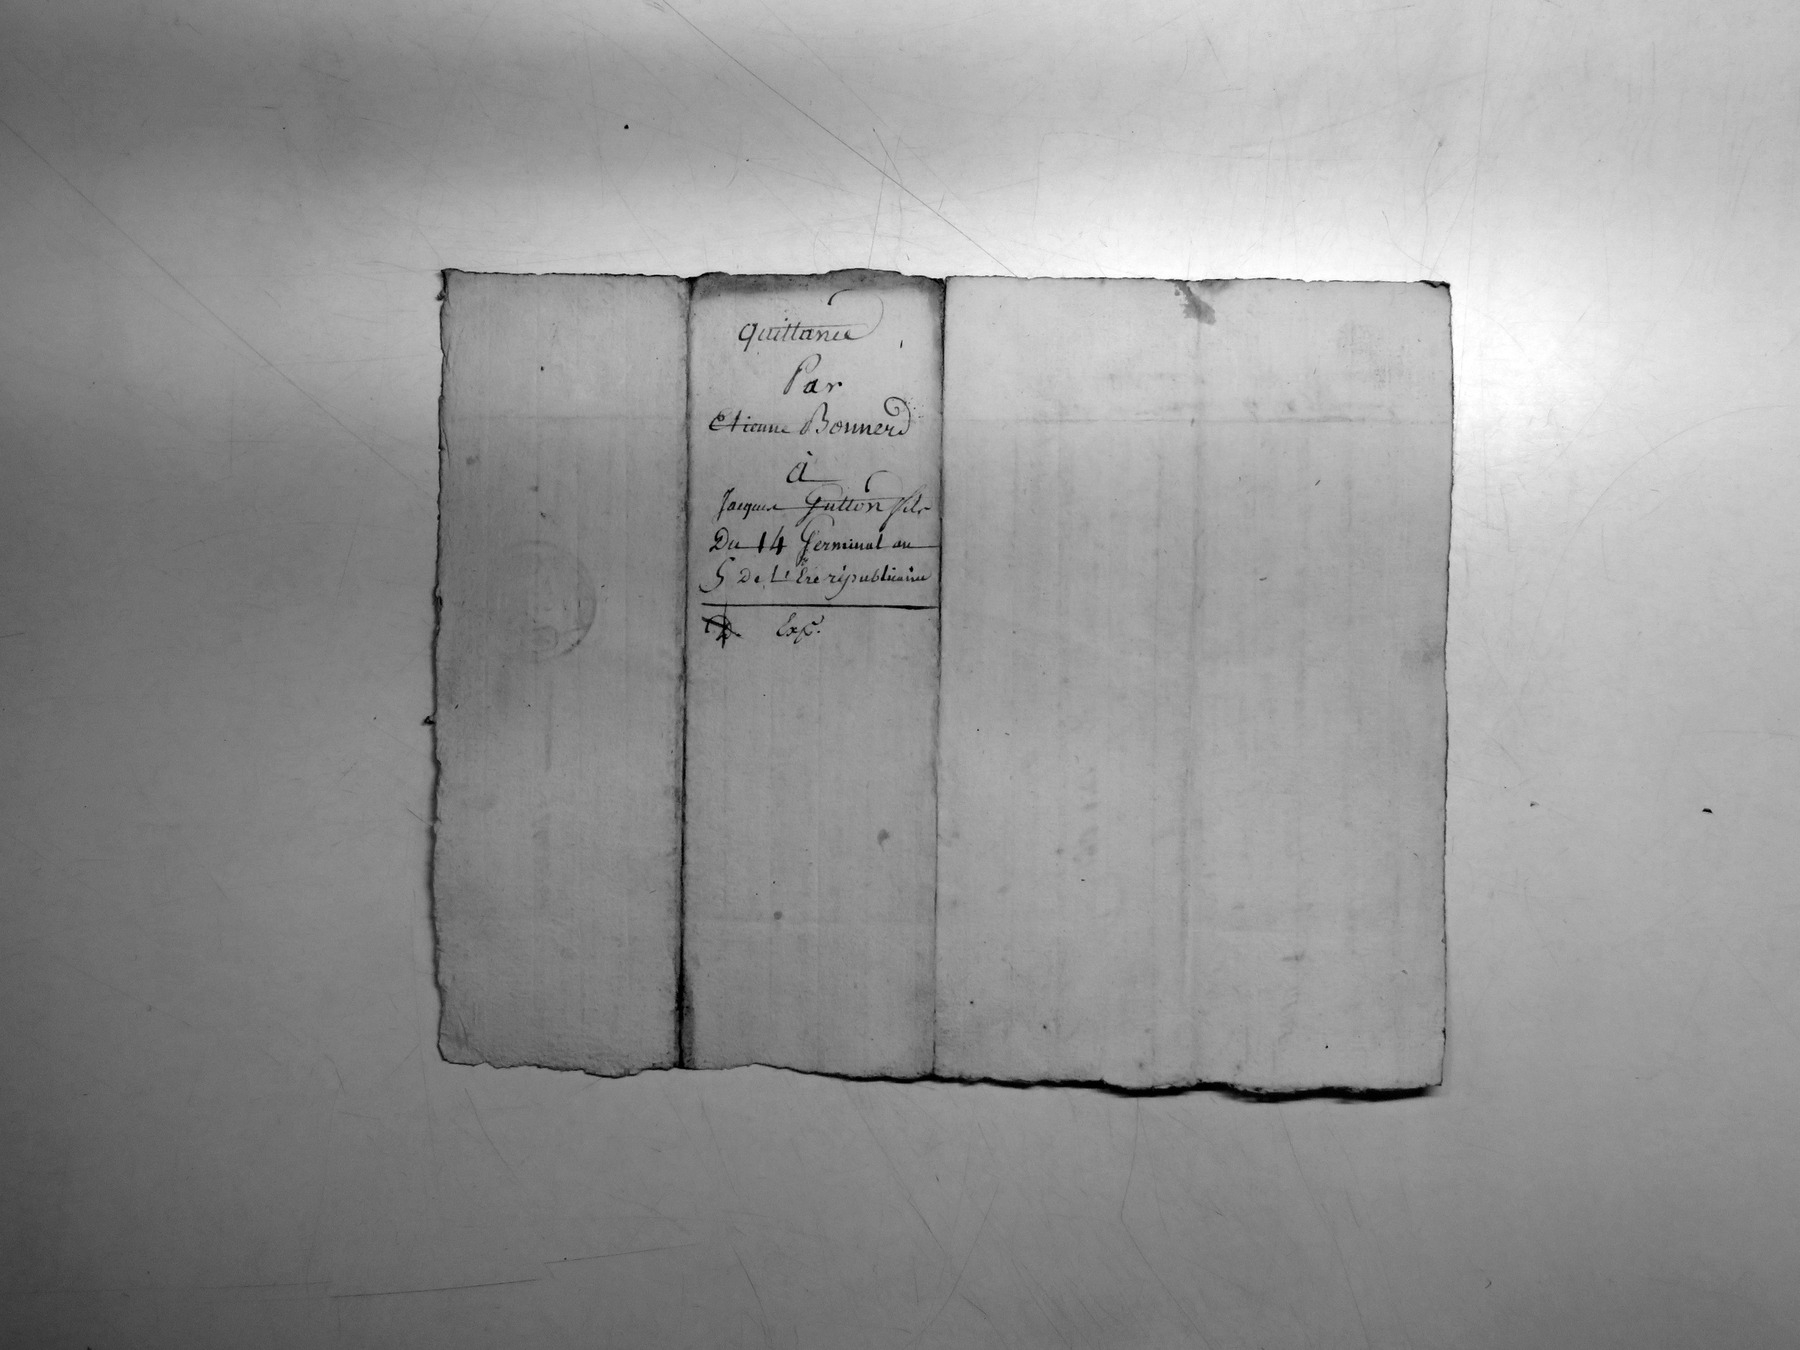 Quittance
Par
Etienne Bonnerd
à
Jacques Gutton fils
Du 14 Germinal an
5 de L'Ere républicaine
Exp.